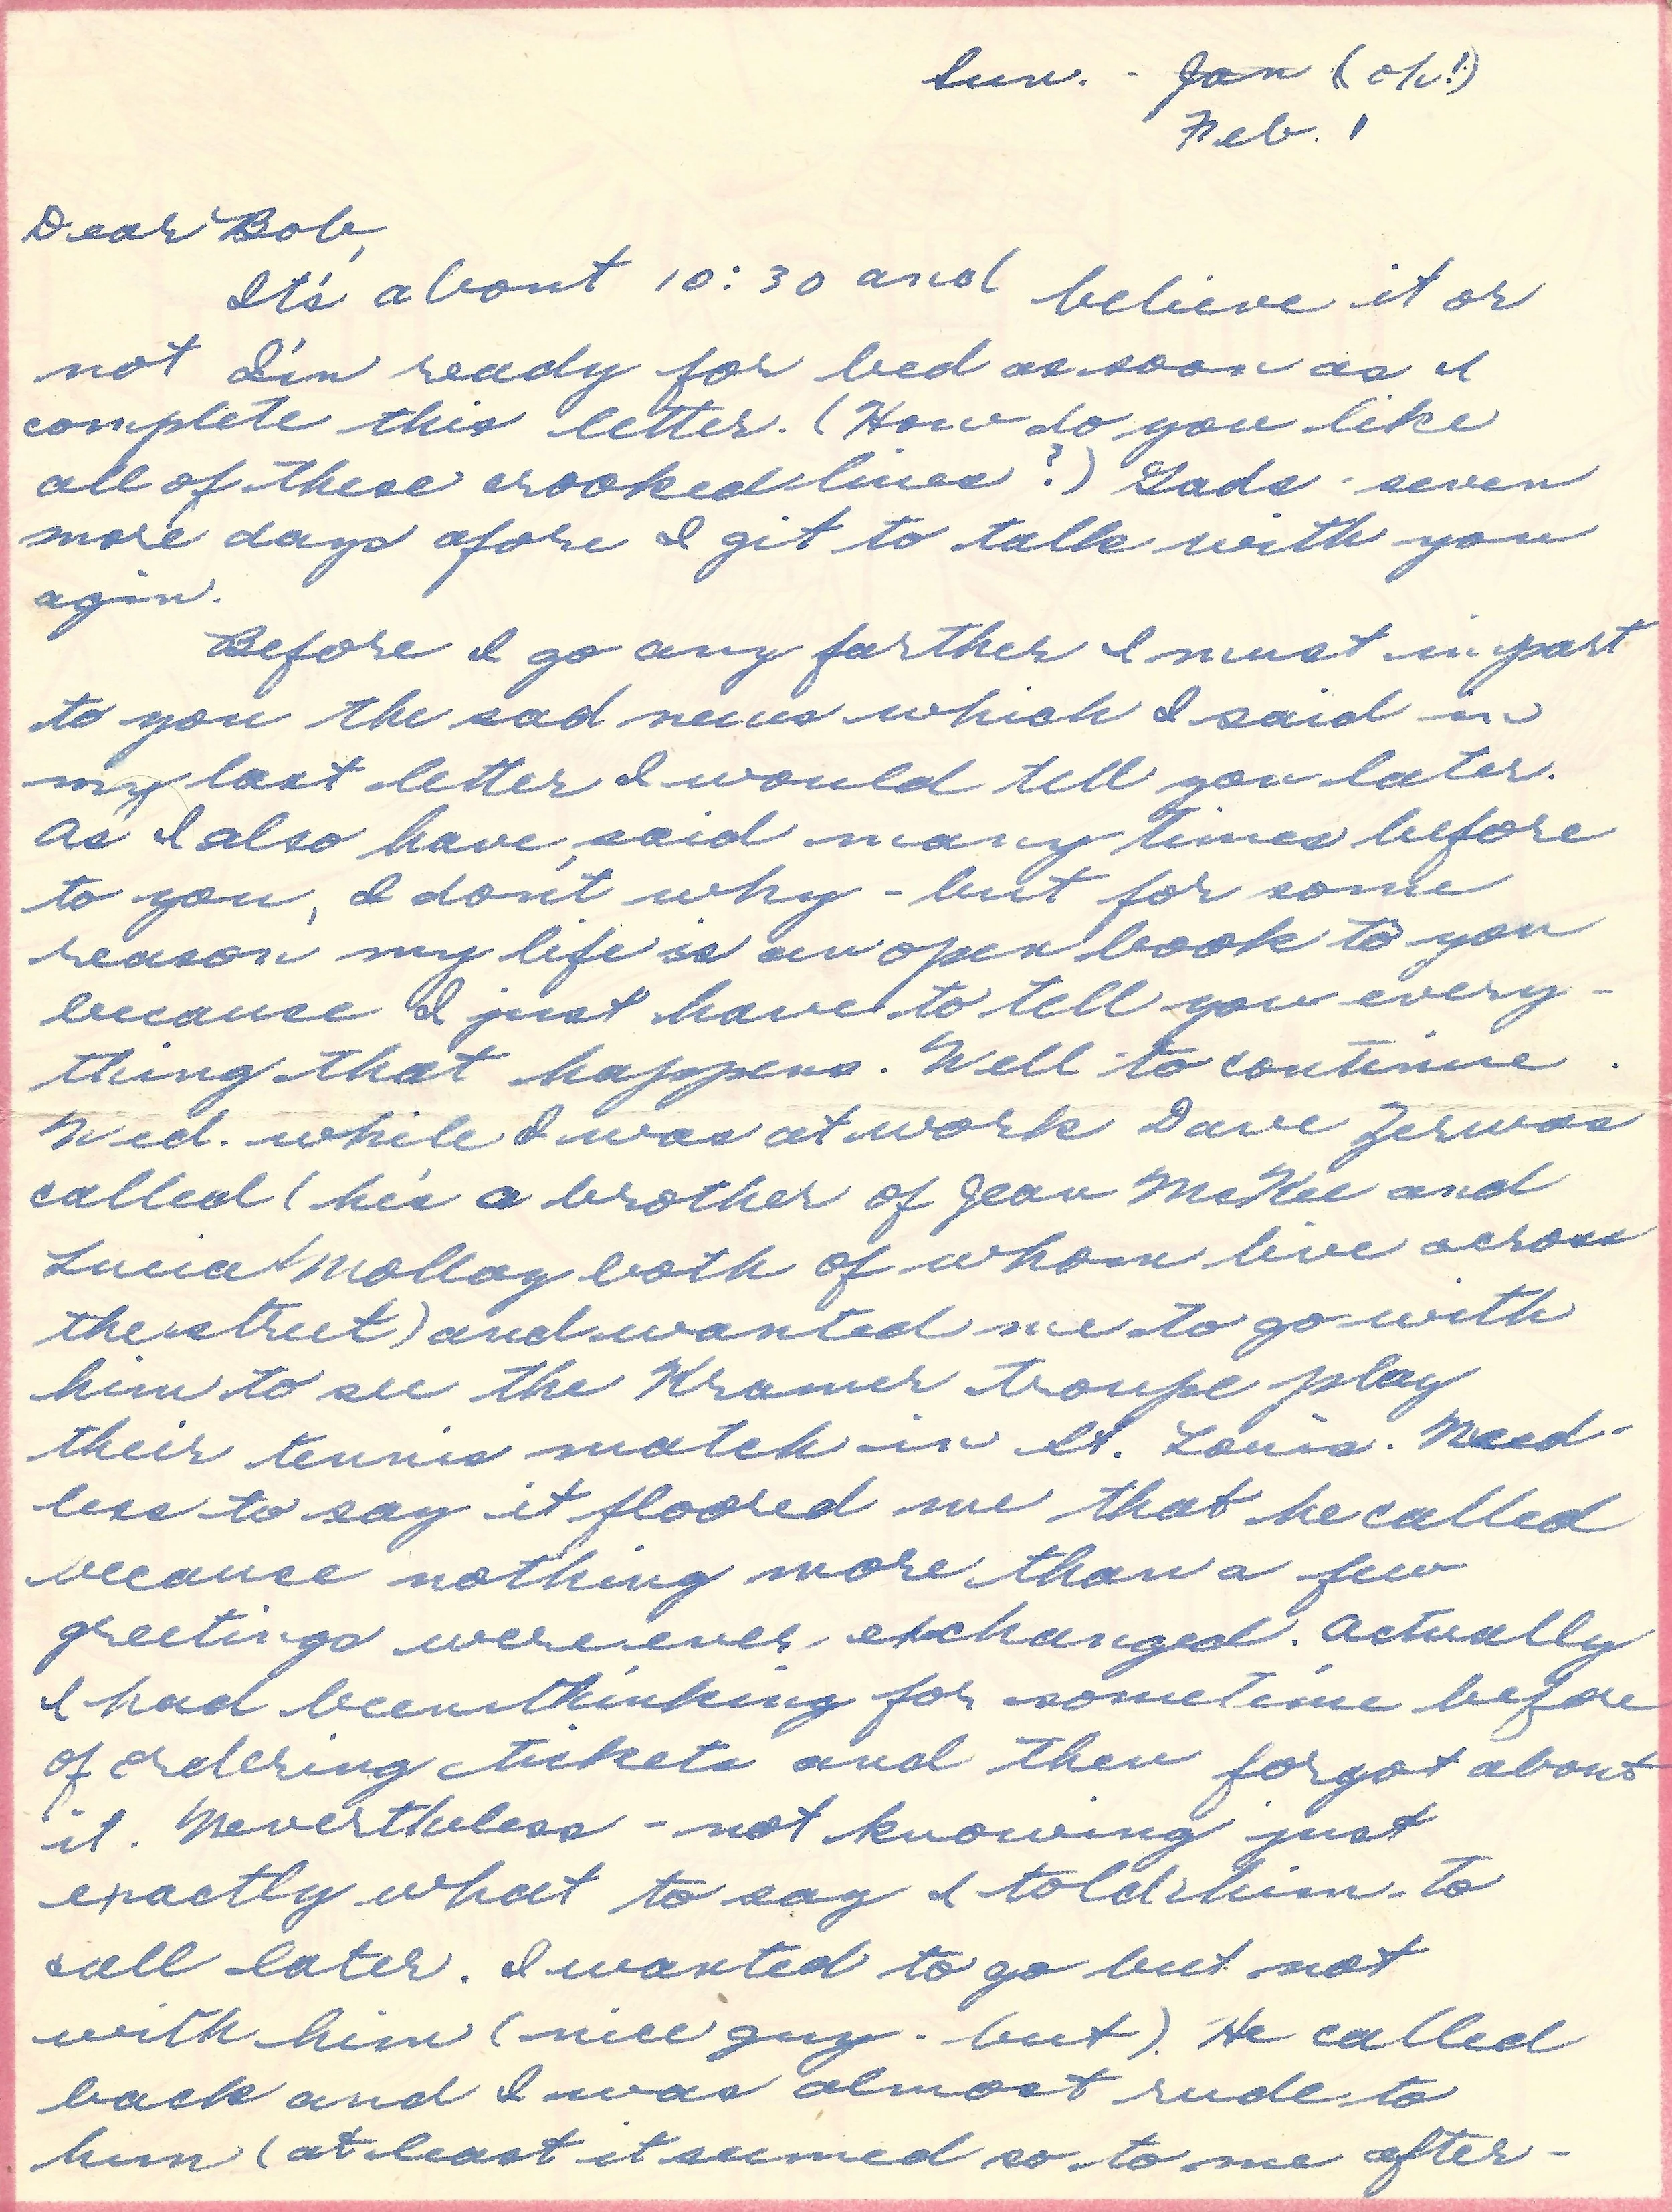 Sun. - Jan (oh!)
Feb. 1
Dear Bob,
It's about 10:30 and believe it or
not I'm ready for bed as soon as I
complete this letter. (How do you like
all of these crooked lines?) Gads - seven
more days afore I git to talk with you
agin.
Before I go any farther I must impart
to you the sad news which I said in
my last letter I would tell you later.
As I also have, said many times before
to you, I don't why - but for some
reason my life is an open book to you
because I just have to tell you every-
thing that happens. Well to continue.
Wed. while I was at work Dave Zerwas
called (he's a brother of Jean McKee and
Lucia Molloy both of whom live across
the street) and wanted me to go with
him to see the Kramer troupe play
their tennis match in St. Louis. Need-
less to say it floored me that he called
because nothing more than a few
greetings were ever exchanged. Actually
I had been thinking for sometime before
of ordering tickets and then forgot about
it. Nevertheless - not knowing just
exactly what to say I told him to
call later. I wanted to go but not
with him (nice guy - but). He called
back and I was almost rude to
him (at least it seemed so to me after-